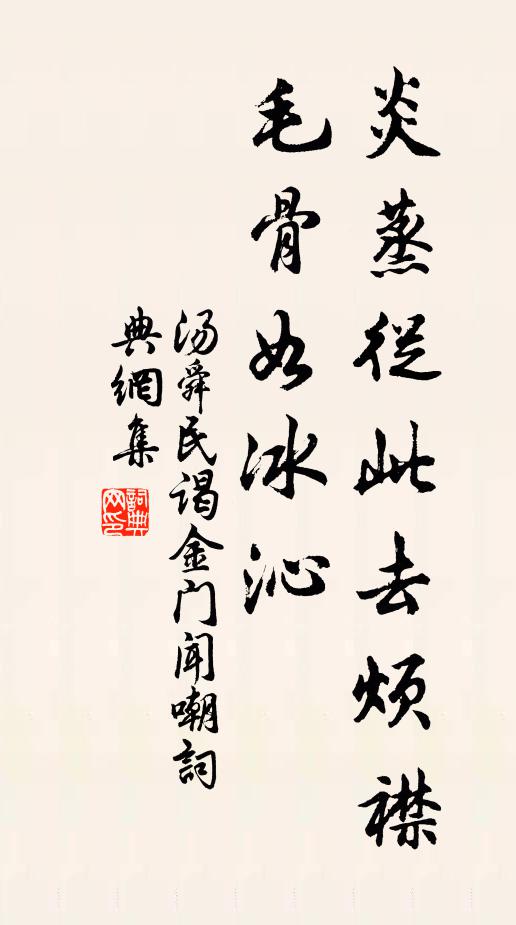 炎蒸從此去煩襟
毛骨如冰沁
汤舜民谒金门闻嘲詞
典網集
詞典
网印